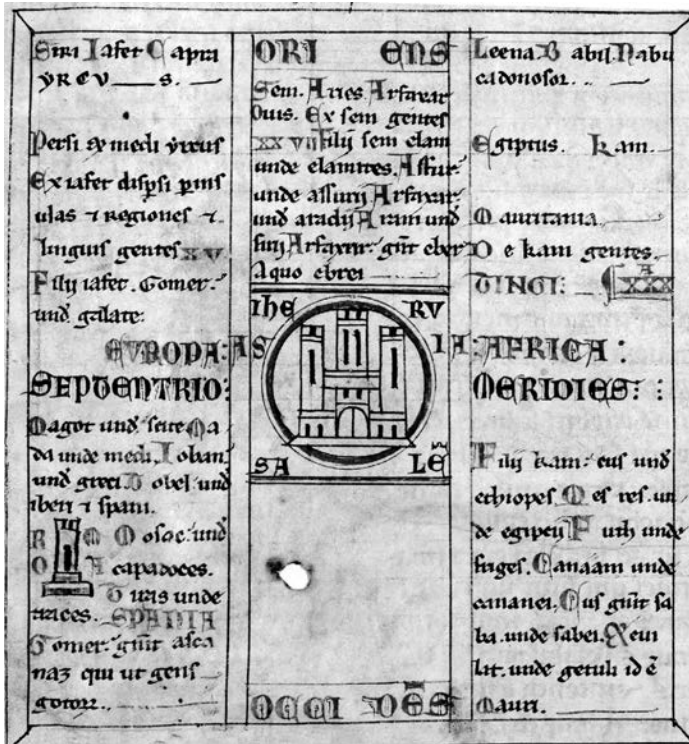 Siri Iafet Capra
YRCV____S.
Persi et medi yrcus
Ex iafet dispsi p ins
ulas ⁊ regiones ⁊
linguis gentes XV
Filii iafet. Gomer.
und galate:
EVROPA:
SEPTENTRIO:
Magot und scite Ma
da unde medi. Ioban
und greci. Tobel und
iberi ⁊ spani.
RO MA
Mosoc. und
capadoces.
Tiras unde
traces. SPANIA
Gomer. gnit asca
naz qui ut gens
gotorz.
ORI ENS
Sem. Aries. Arfaxat
Ouis. Ex sem gentes
XXVII Filij sem elam
unde elamites. Assur.
unde assurij Arfaxat.
und aradij Aram und
sirij Arfaxat. gnit eber
A quo ebrei
IHE RV
AS IA:
SA LE
OCCI DES
Leena. Babil. Nabu
cadonosor.
Egiptus. kam.
Mauritania
De kam gentes.
TINGI: XXX
AFRICA:
MERIDIES:
Filij kam. cus und
ethiopes. Mes res. un
de egiptij Futh unde
fuges. Canaam unde
cananei. Cus gnit sa
ba. unde sabei. Eeui
lat. unde getuli id e
Mauri.